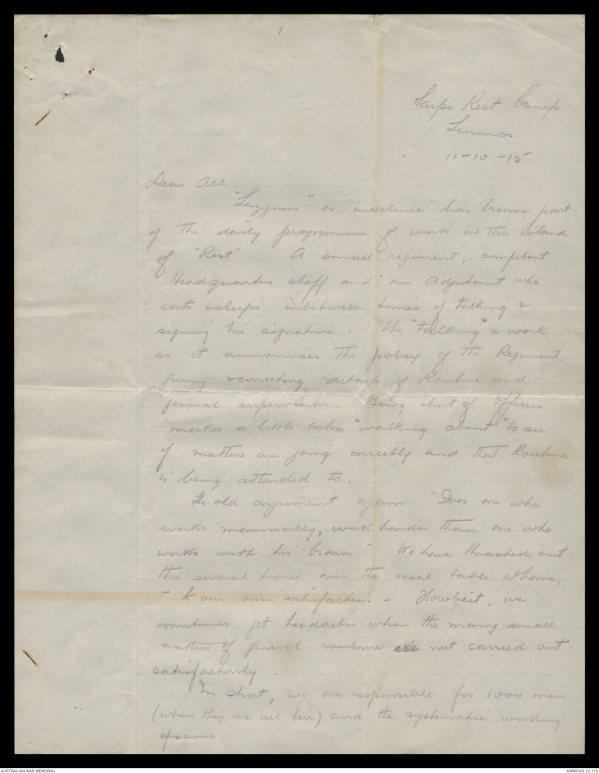 1
Sarpi Rest Camp
Lemnos
11-10-15
Dear All
"Lazyness" or "indolence" has become part
of the daily programme of work at this island
of "Rest". A small regiment, competent
Headquarters staff and an Adjutant who
eats & sleeps inbetween times of talking &
signing his signature. The "talking" is work
as it announces the policy of the Regiment,
giving & correcting details of Routine and
general supervision. Being short of officers
makes a little extra "walking about" to see
if matters are going correctly and that Routine
is being attended to.
The old argument again "Does one who
works mannually, work harder than one who
works with his brain" We have thrashed out
this several times over the meal table at home,
- to our own satisfaction - Howbeit, we
sometimes get headaches when the many small
matters of general routine are not carried out
satisfactorily.
In short, we are responsible for 1000 men
(when they are all here) and the systematic working
of same
AUSTRALIAN WAR MEMORIAL